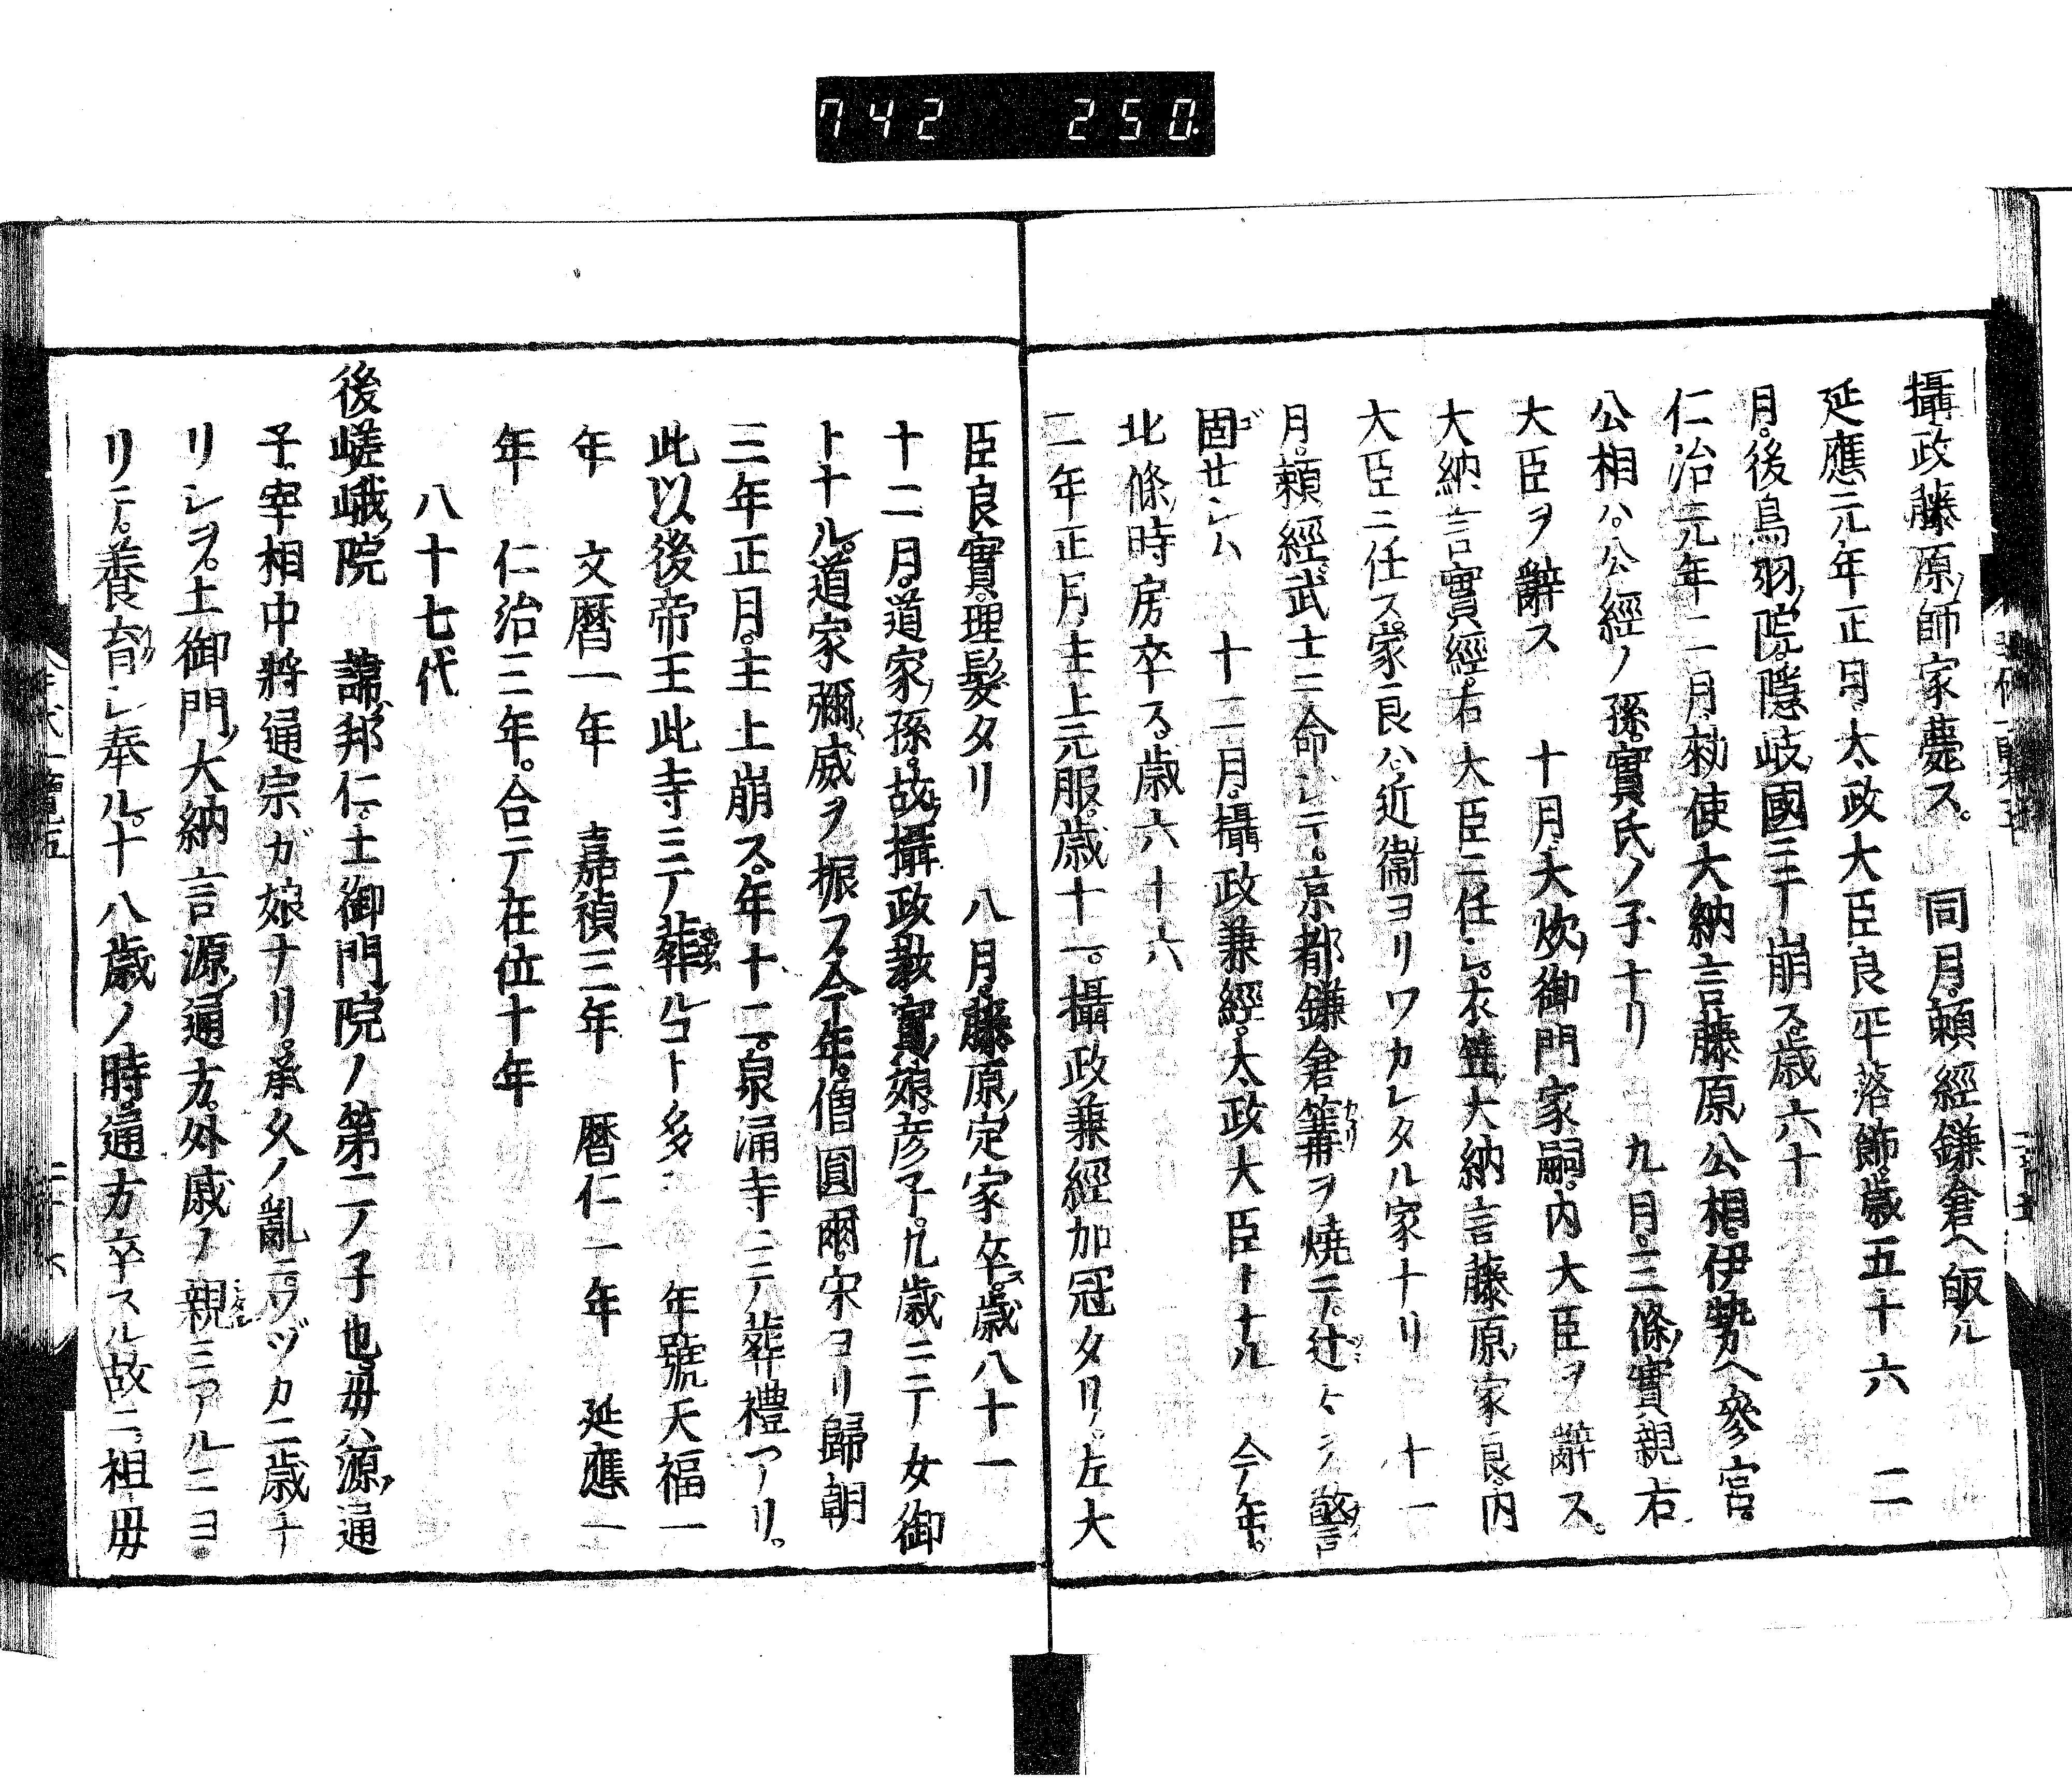 742 250.
攝政藤原師家薨ス。同月。頼經鎌倉ヘ皈ル
延應元年正月。太政大臣良平落飾。歳五十六 二
月。後鳥羽院。隱岐國ニテ崩ス。歳六十
仁治元年二月。勅使大納言藤原公相。伊勢ヘ參宮。
公相ハ。公經ノ孫。實氏ノ子ナリ 九月。三條實親右
大臣ヲ辭ス 十月。大炊御門家嗣。内大臣ヲ辭ス。
大納言實經。右大臣ニ任シ。衣笠大納言藤原家良。内
大臣ニ任ス。家良ハ。近衞ヨリワカレタル家ナリ 十一
月。頼經。武士ニ命シテ。京都鎌倉篝ヲ燒テ。辻〻ヲ警
固サシム 十二月。攝政兼經。太政大臣トナル 今年。
北條時房卒ス。歳六十六
二年正月。主上元服。歳十一。攝政兼經加冠タリ。左大
臣良實。理髮タリ 八月。藤原定家卒ス。歳八十一
十二月。道家孫。故攝政教實娘。彦子。九歳ニテ女御
トナル。道家彌威ヲ振フ 今年。僧圓爾。宋ヨリ歸朝
三年正月。主上崩ス。年十二。泉涌寺ニテ葬禮アリ。
此以後帝王此寺ニテ葬ルコト多シ 年號天福一
年 文暦一年 嘉禎三年 暦仁一年 延應一
年 仁治三年。合テ在位十年
八十七代
後嵯峨院 諱邦仁。土御門院ノ第二ノ子也。毋ハ源通
子。宰相中將通宗ガ娘ナリ。承久ノ亂ニ。ワヅカ二歳ナ
リシヲ。土御門大納言源通方。外戚ノ親ミアルニヨ
リテ。養育シ奉ル。十八歳ノ時。通方卒スル故ニ。祖毋